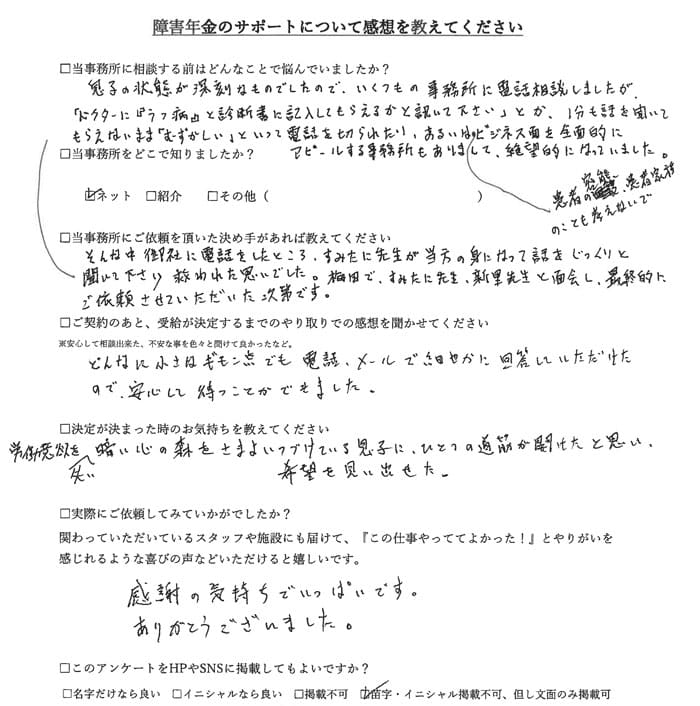 障害年金のサポートについて感想を教えてください
□当事務所に相談する前はどんなことで悩んでいましたか？
息子の状態が深刻なものでしたので、いくつもの事務所に電話相談しましたが、
「ドクターに『うつ病』と診断書に記入してもらえるかと認いて下さい」とか、1分も話を聞いて
もらえないまま「むずかしい」といって電話を切られたり、あるいはビジネス面を全面的に
アピールする事務所もありまして、絶望的になっていました。
患者の容態、患者家族
のことも考えないで
□当事務所をどこで知りましたか？
☑ネット □紹介 □その他（ ）
□当事務所にご依頼を頂いた決め手があれば教えてください
そんな中御社に電話をしたところ、すみたに先生が当方の身になって話をじっくりと
聞いて下さり救われた思いでした。梅田で、すみたに先生、新里先生と面会し、最終的に
ご依頼させていただいた次第です。
□ご契約のあと、受給が決定するまでのやり取りでの感想を聞かせてください
※安心して相談出来た、不安な事を色々と聞けて良かったなど。
どんなに小さなギモン点でも電話、メールで細やかに回答していただけた
ので、安心して待つことができました。
□決定が決まった時のお気持ちを教えてください
労働意欲を失い
暗い心の森をさまよいつづけている息子に、ひとつの道筋が開けたと思い、
希望を見い出せた。
□実際にご依頼してみていかがでしたか？
関わっていただいているスタッフや施設にも届けて、『この仕事やっててよかった！』とやりがいを
感じれるような喜びの声などいただけると嬉しいです。
感謝の気持ちでいっぱいです。
ありがとうございました。
□このアンケートをHPやSNSに掲載してもよいですか？
□名字だけなら良い □イニシャルなら良い □掲載不可 ☑苗字・イニシャル掲載不可、但し文面のみ掲載可